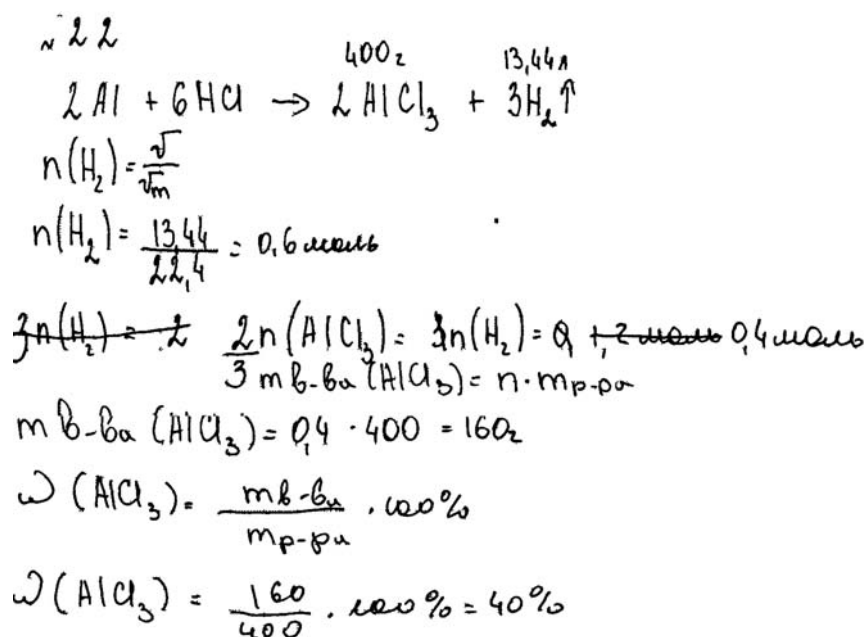 № 22
400г 13,44л
2Al + 6HCl → 2AlCl₃ + 3H₂↑
n(H₂) = V/Vm
n(H₂) = 13,44/22,4 = 0,6 моль
3n(H₂) = 2 2/3 n(AlCl₃) = 3n(H₂) = 0, 1,2 моль 0,4 моль
m в-ва (AlCl₃) = n · m р-ра
m в-ва (AlCl₃) = 0,4 · 400 = 160г
ω (AlCl₃) = m в-ва/m р-ра · 100%
ω (AlCl₃) = 160/400 · 100% = 40%